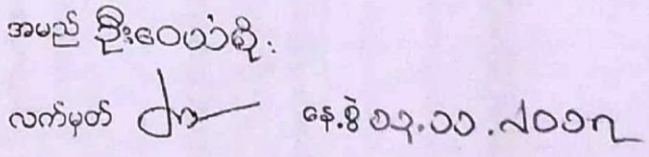 အမည် ဦးဝေယံစိုး
လက်မှတ် နေ့စွဲ ၁၃.၁၁.၂၀၁၇